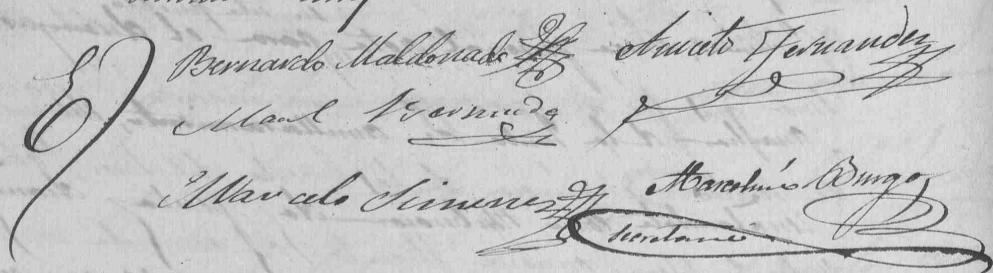 Bernardo Maldonado Aniceto Fernandez
Man.l Bermudez
Marcelo Gimenez Marcelino Burgo
Secretario